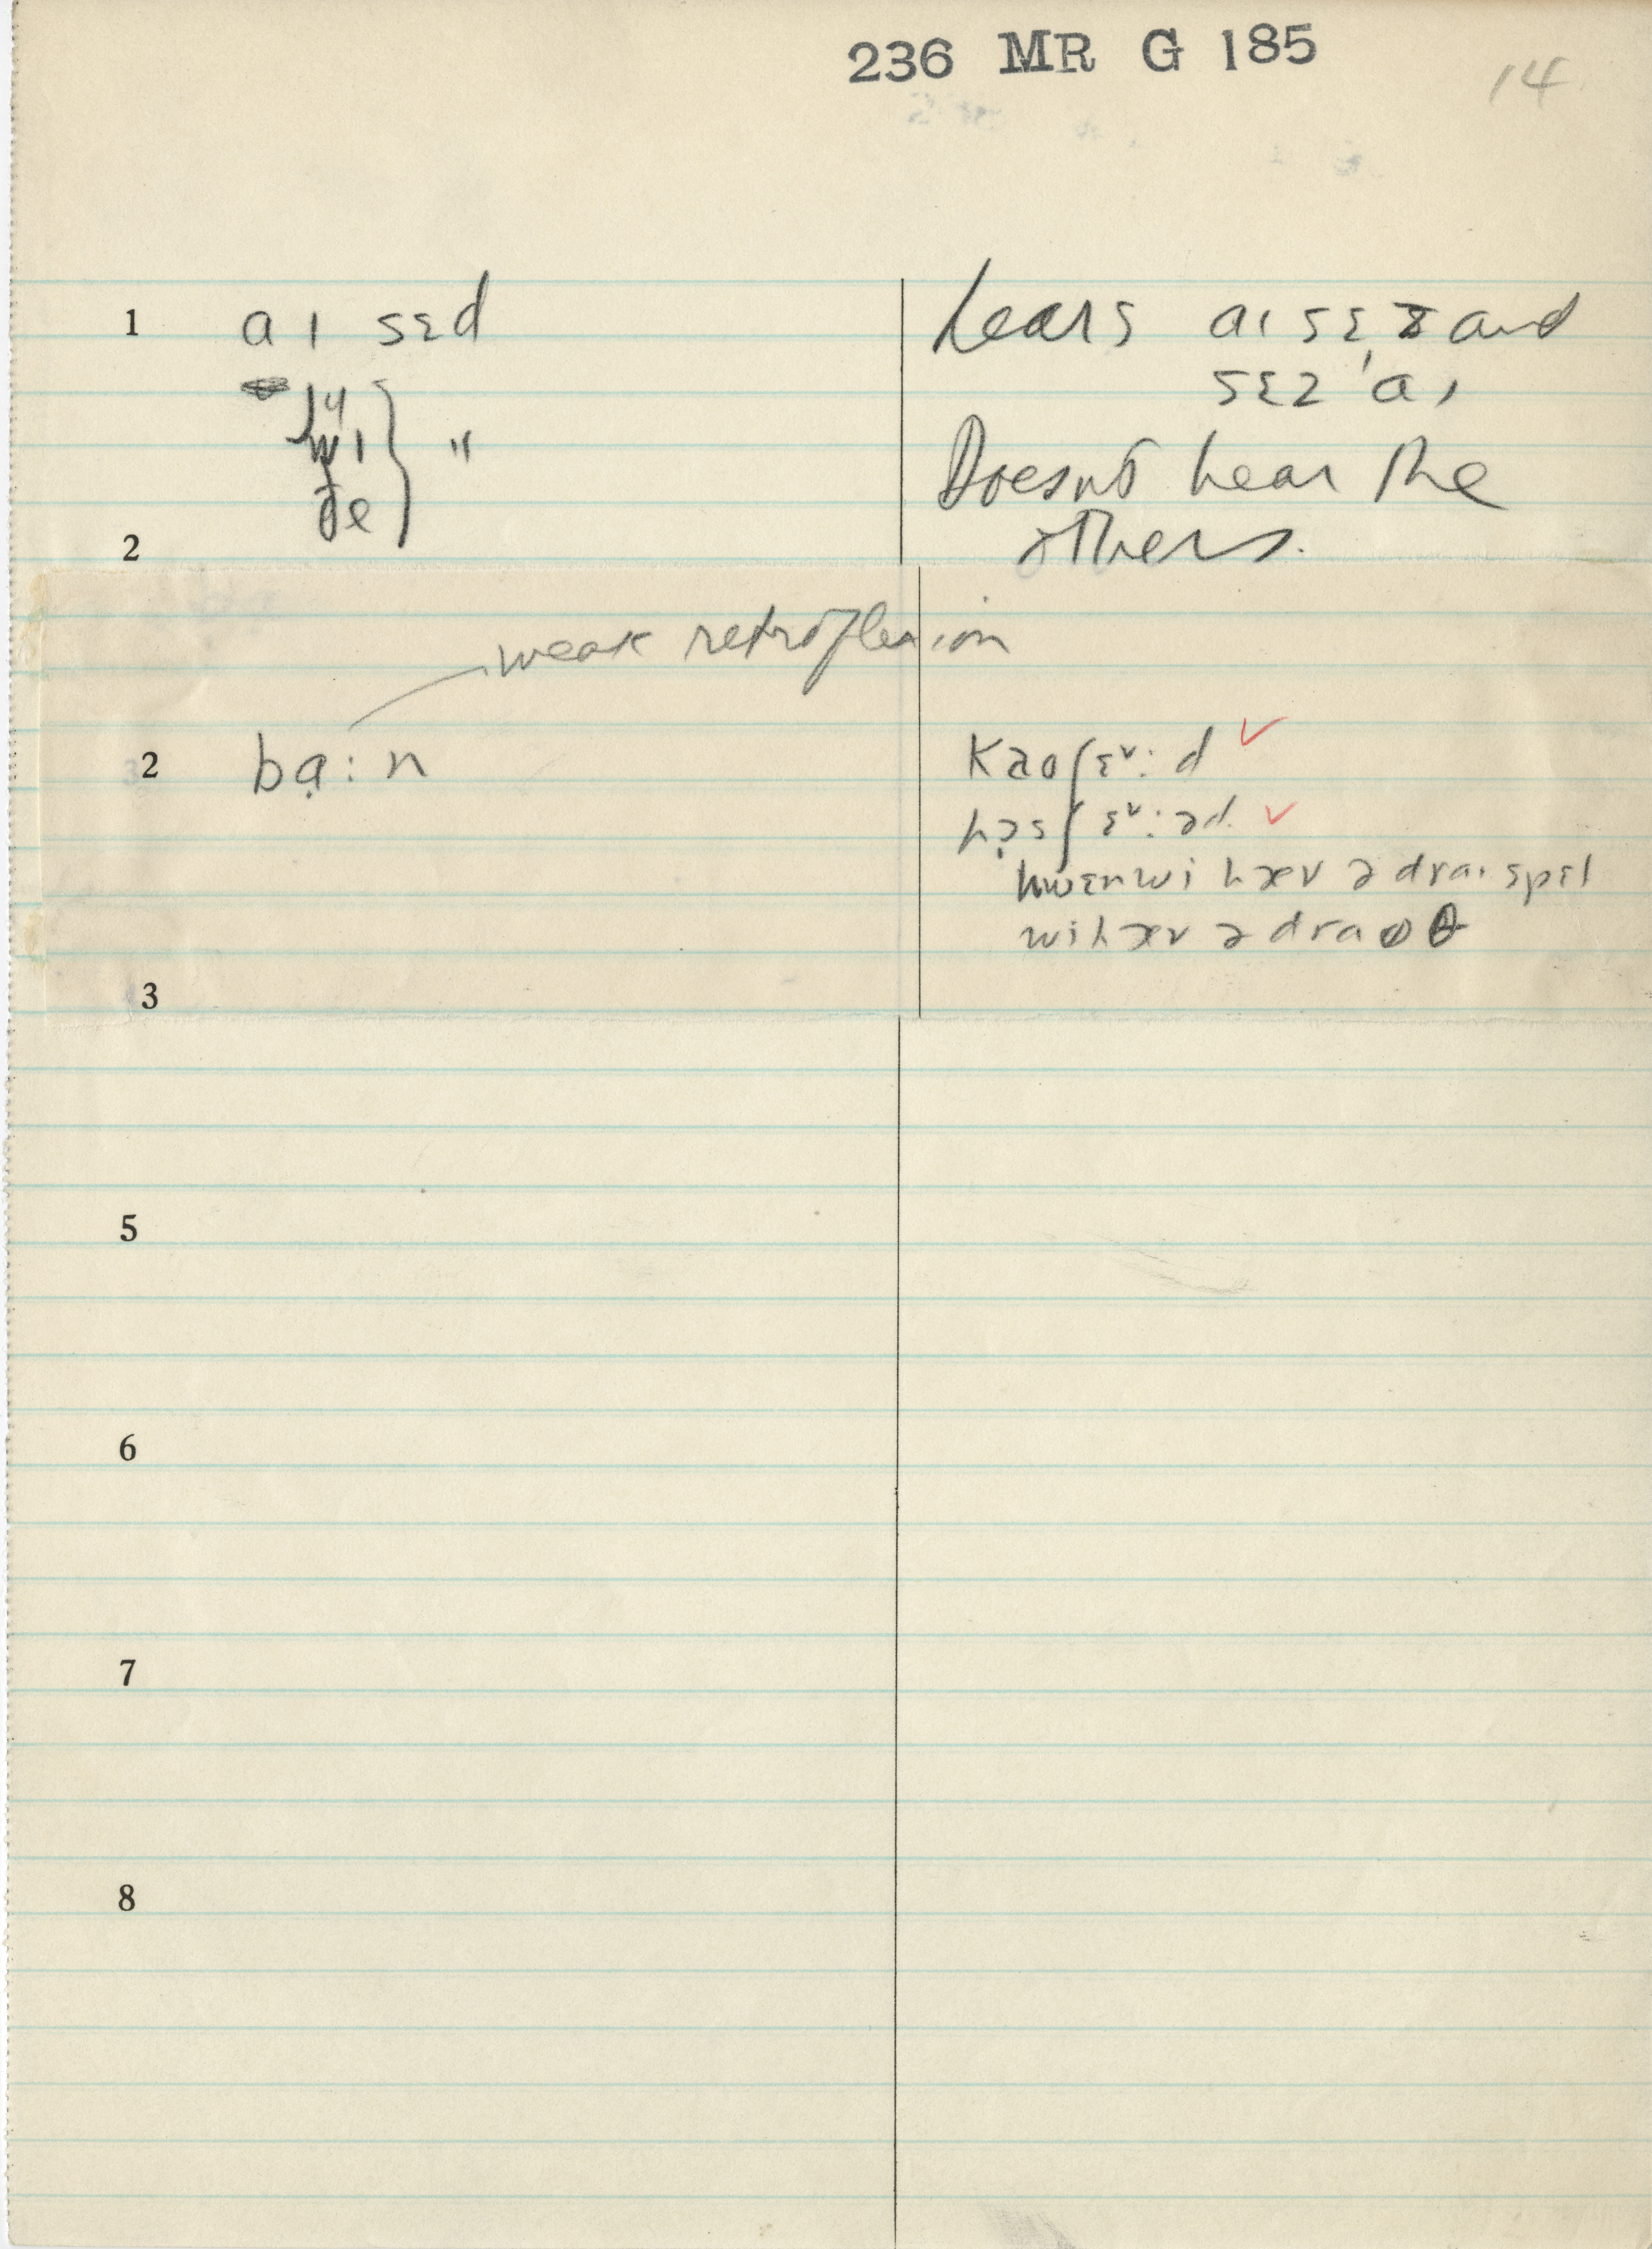 236 MR G 185
14
1 aɪ sɛd
hears aɪ sɛz and
sɛz 'aɪ
wɪ "
ðe
Doesn't hear the
2 others.
weak retroflexion
2 bạ:n
kaoʃɛᵛ:d ✓
hə̣sʃɛᵛ:əd ✓
hwɛnwi hæv ə draɪ spɛl
wi hæv ə draʊθ
3
5
6
7
8